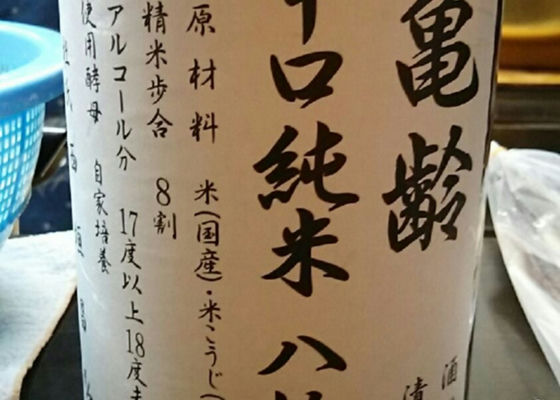 亀齢
酒
清
辛口純米 八
原材料 米(国産)・米こうじ(
精米歩合 8割
アルコール分 17度以上18度
使用酵母 自家培養